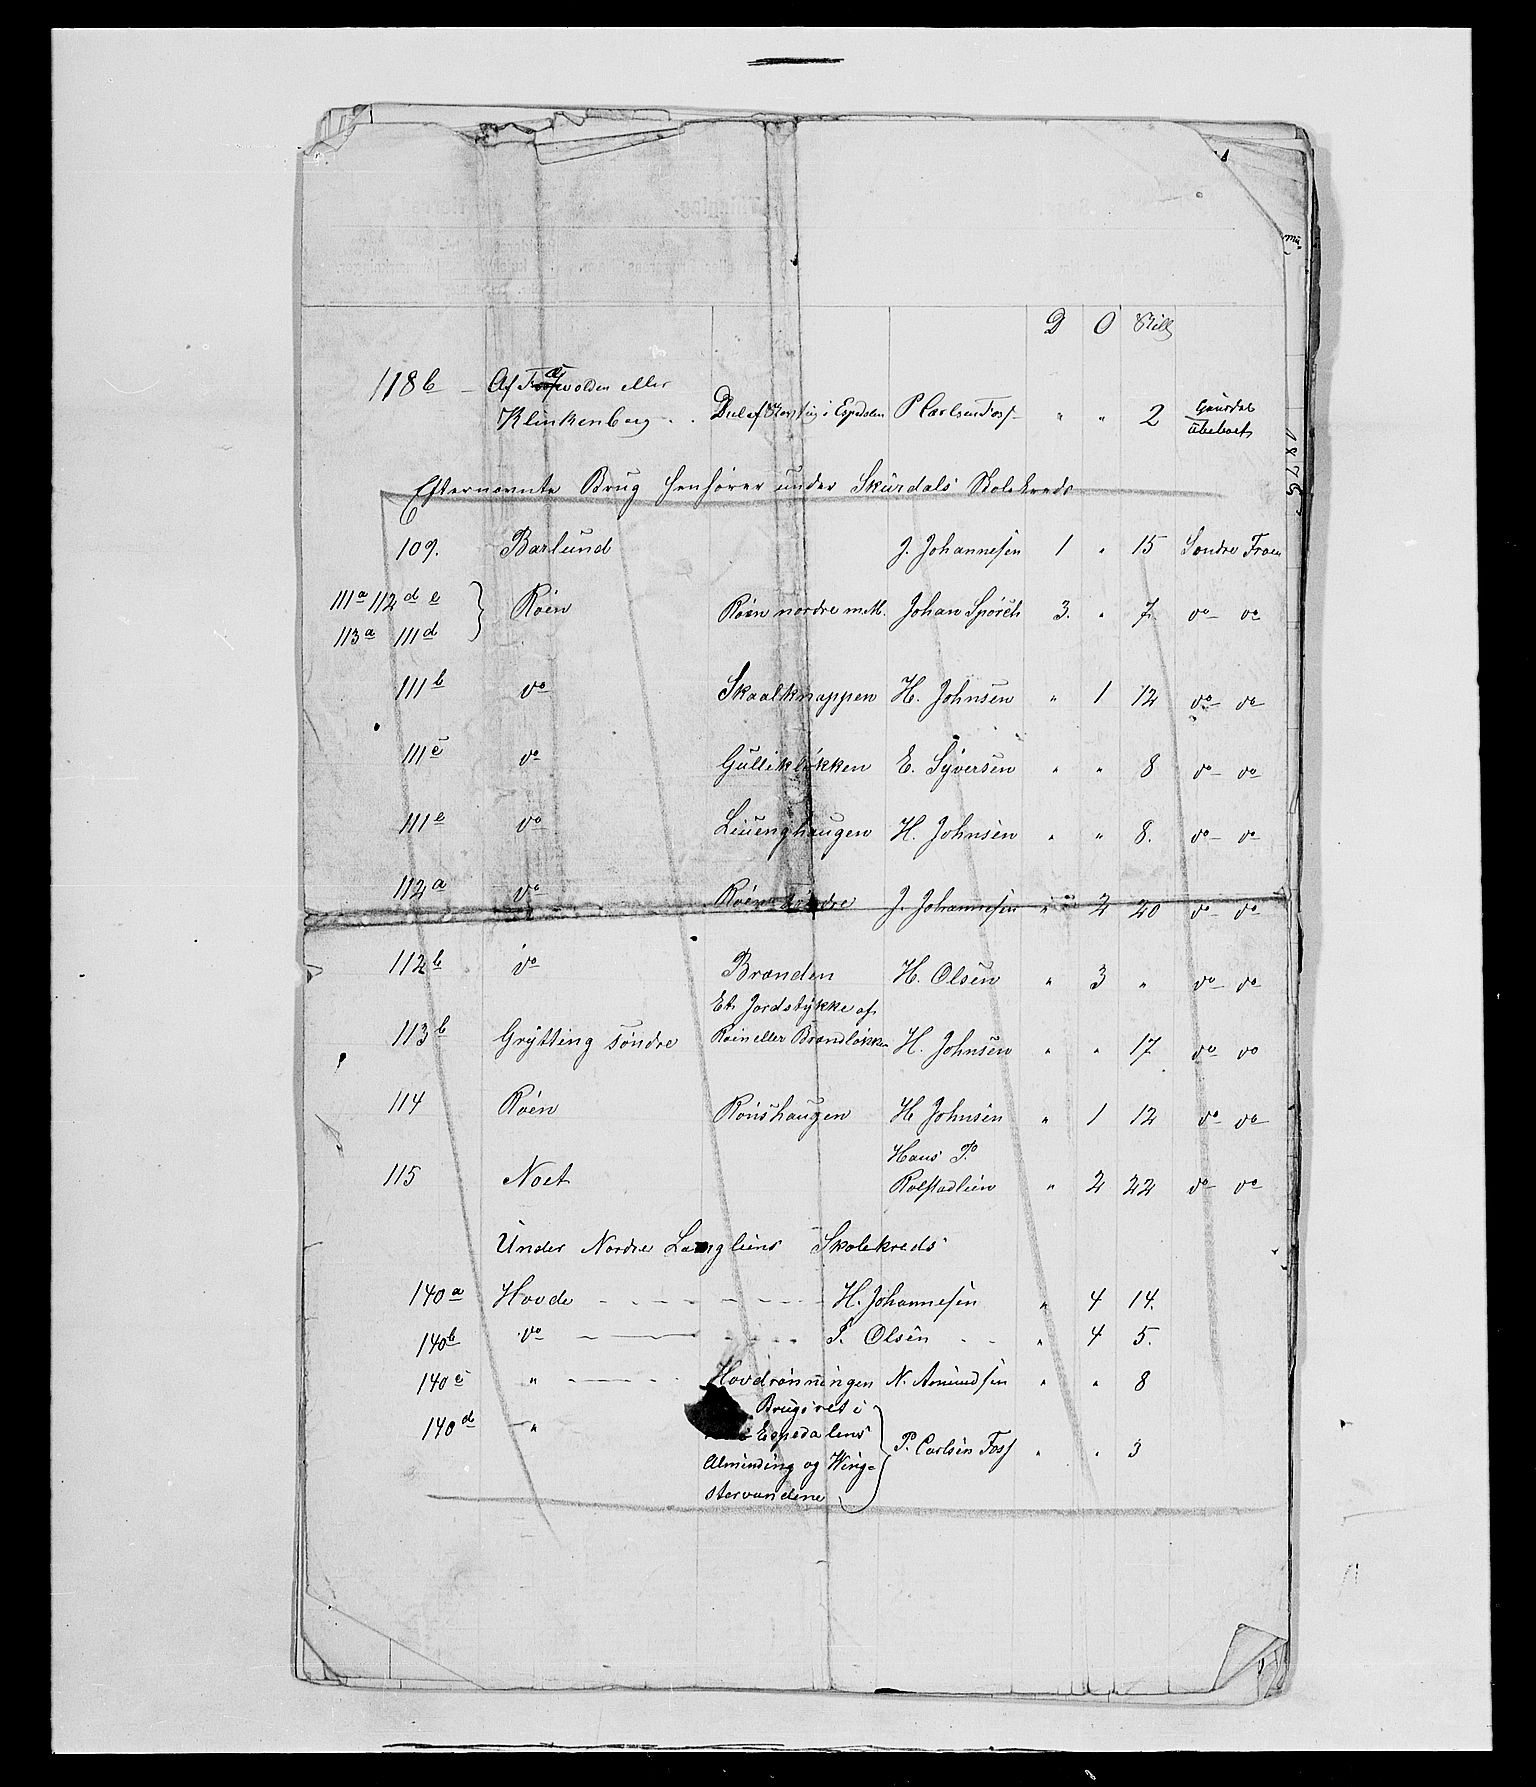 D O Skill
118b Af Fossvolden eller
Klinkenberg Deel af Storstuig i Espedalen P Carlsen Foss " " 2 Gausdal
Ubeboet
Efternævnte Brug henhører under Skurdals Skolekreds
1875
109. Barlund J. Johannesen 1 " 15 Søndre Fron
111a 112 d e
113a 111d } Røen Røen nordre m M. Johan Spørch 3. " 7. do do
111b do Skaalknappen H. Johnsen " 1 12 do do
111c do Gullikløkken E. Syversen " " 8 do do
111e do Liuenghaugen H. Johnsen " " 8. do do
112a do Røen søndre J. Johannesen " 2 20 do do
112b do Brænden H. Olsen " 3 " do do
Et Jordstykke af
113b Grytting søndre Røin eller Brændløkken H. Johnsen " " 17 do do
114 Røen Rønshaugen H Johnsen " 1 12 do do
Hans P.
115 Noet Rolstadlien " 2 22 do do
Under Nordre Langliens Skolekreds
140a Hovde H. Johannesen " 4 14.
140b do P. Olsen " 4 5.
140c " Hovdrønningen N. Amundsen " " 8
140d " Brugsret i
Espedalens
Alminding og Wing-
stervandene } P. Carlsen Foss " " 3